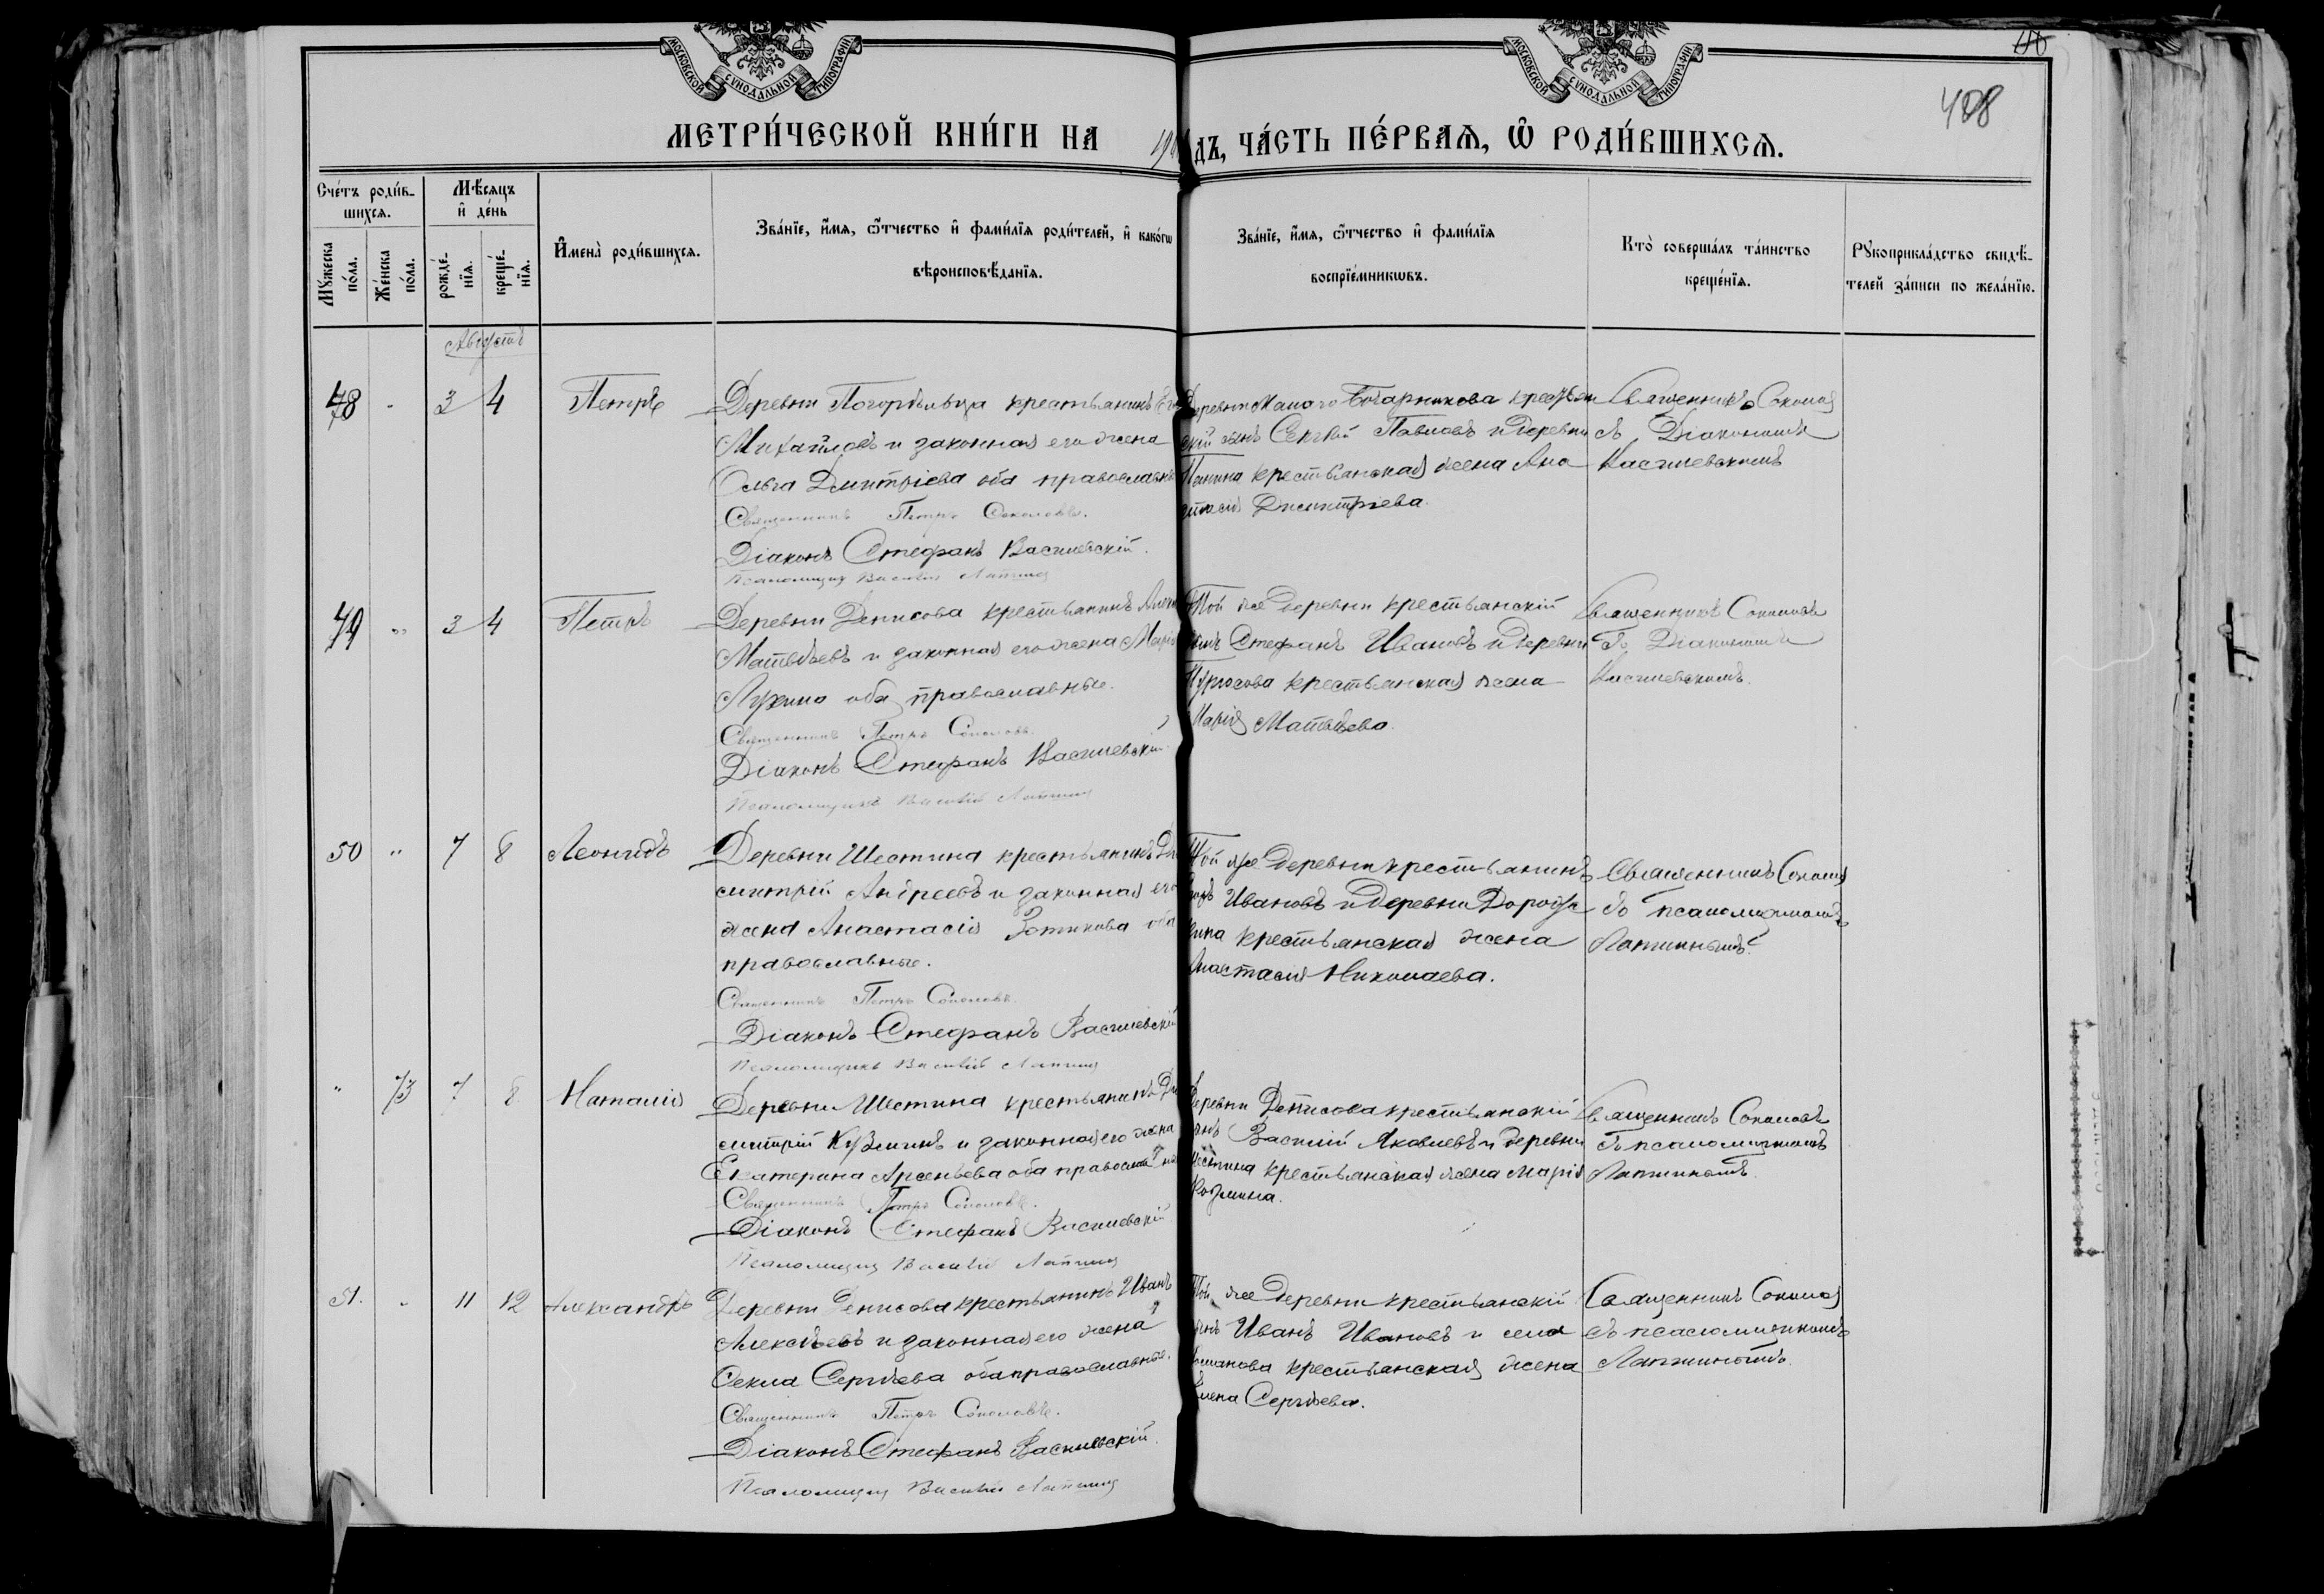 МОСКОВСКОЙ СѴНОДАЛЬНОЙ ТИПОГРАФІИ
МОСКОВСКОЙ СѴНОДАЛЬНОЙ ТИПОГРАФІИ
408
МЕТРИ́ЧЕСКОЙ КНИ́ГИ НА
дъ, ЧА́СТЬ ПЕ́РВАѦ, Ѡ҆ РОДИ́ВШИХСѦ.
Сче́тъ роди́в-
шихсѧ.
Мꙋ́жеска по́ла.
Же́нска по́ла.
Мѣ́сѧцъ
и҆ де́нь
рожде́-
нїѧ.
креще́-
нїѧ.
И҆мена̀ роди́вшихсѧ.
Зва́нїе, и҆́мѧ, ѻ҆́тчество и҆ фами́лїѧ роди́телей, и҆ како́гѡ
вѣроисповѣ́данїѧ.
Зва́нїе, и҆́мѧ, ѻ҆́тчество и҆ фами́лїѧ
воспрїе́мникѡвъ.
Кто̀ соверша́лъ та́инство
креще́нїѧ.
Рꙋкоприкла́дство свидѣ́-
телей за́писи по жела́нїю.
Августъ
48 " 3 4 Петръ
Деревни Погорѣльца крестьянинъ
Михайловъ и законная его жена
Ольга Дмитріева оба православн
Священникъ Петръ Соколовъ.
Діаконъ Стефанъ Васильевскій.
Псаломщикъ Василій Лапшин
Деревни Малого Бочарникова крестьян
скій сынъ Сергѣй Павловъ и деревни
Панина крестьянская жена Ана
стасія Дмитріева.
Священникъ Соколов
съ Діакономъ
Васильевскимъ
49 " 3 4 Петръ
Деревни Денисова крестьянинъ
Матвѣевъ и законная его жена
Лукина оба православные.
Священникъ Петръ Соколовъ.
Діаконъ Стефанъ Васильевскій.
Псаломщикъ Василій Лапшин
Той же деревни крестьянскій
сынъ Стефанъ Ивановъ и деревни
крестьянская жена
Марія Матвѣева.
Священникъ Соколовъ
съ Діакономъ
Васильевскимъ.
50 " 7 8 Леонидъ
Деревни Шестина крестьянинъ Ди
митрій Андреевъ и законная его
жена Анастасія Зотикова оба
православные.
Священникъ Петръ Соколовъ.
Діаконъ Стефанъ Васильевскій
Псаломщикъ Василій Лапшин
Той же деревни крестьянинъ
Ивановъ и деревни
крестьянская жена
Анастасія Николаева.
Священникъ Соколов
съ псаломщикомъ
Лапшинымъ.
" 73 7 8 Наталія
Деревни Шестина крестьянинъ Ди
митрій Кузминъ и законная его жена
Екатерина Арсеньева оба православ
Священникъ Петръ Соколовъ.
Діаконъ Стефанъ Васильевскій
Псаломщикъ Василій Лапшин
Деревни Денисова крестьянскій
сынъ Василій Яковлевъ и деревни
Шестина крестьянская жена Марія
Козмина.
Священникъ Соколовъ
съ псаломщикомъ
Лапшинымъ.
51. " 11 12 Александръ
Деревни Денисова крестьянинъ Иванъ
Алексѣевъ и законная его жена
Фекла Сергѣева оба православные.
Священникъ Петръ Соколовъ.
Діаконъ Стефанъ Васильевскій.
Псаломщикъ Василій Лапшин
Той же деревни крестьянскій
сынъ Иванъ Ивановъ и села
крестьянская жена
Елена Сергѣева.
Священникъ Соколов
съ псаломщикомъ
Лапшинымъ.